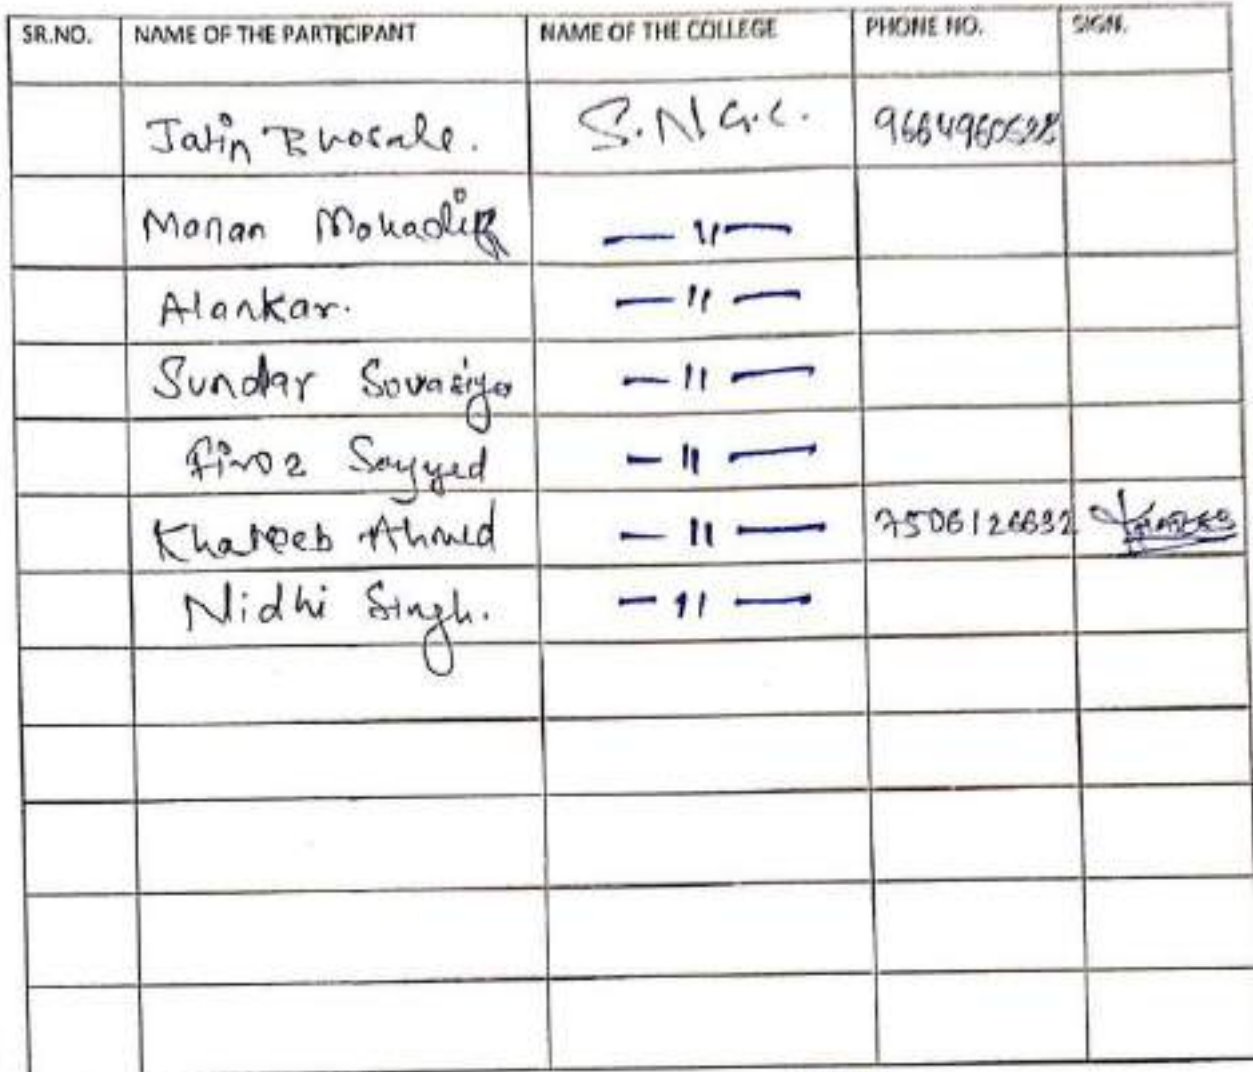 SR.NO. NAME OF THE PARTICIPANT NAME OF THE COLLEGE PHONE NO. SIGN.
Jatin Bhosale. S.N.G.C.
Manan — 11 —
Alankar. — 11 —
Sundar — 11 —
Firoz Sayyed — 11 —
Khateeb Ahmed — 11 — 7506126632
Nidhi Singh. — 11 —